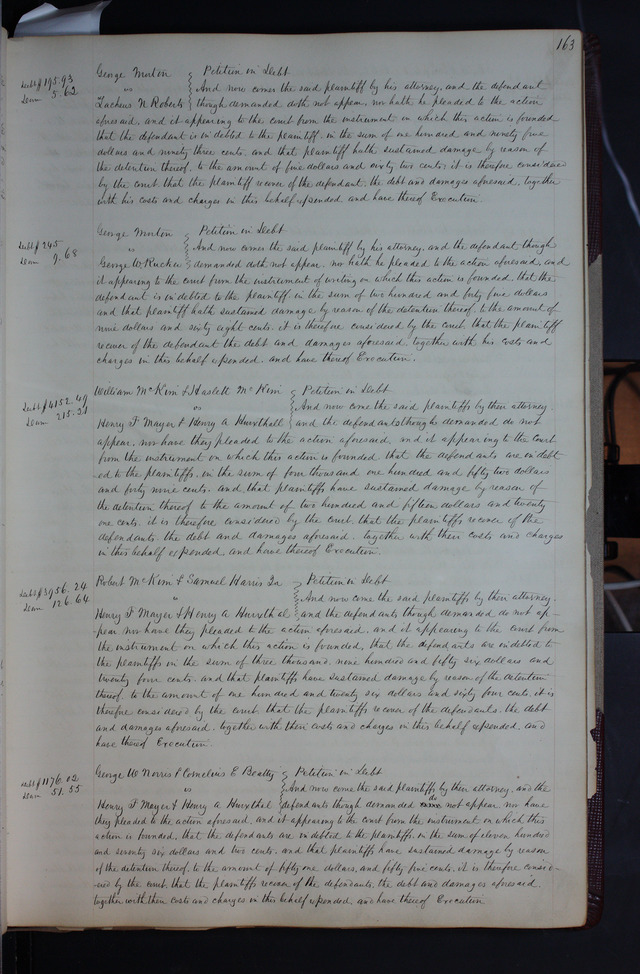 163
George Morton } Petition in Debt
Debt $195.93
Dam 5.62
vs And now comes the said plaintiff by his attorney, and the defendant
Zacheus N Roberts } though demanded doth not appear, nor hath he pleaded to the action
aforesaid, and it appearing to the court from the instrument on which this action is founded
that the defendant is indebted to the plaintiff, in the sum of one hundred and ninety five
dollars and ninety three cents, and that plaintiff hath sustained damage by reason of
the detention thereof, to the amount of five dollars and sixty two cents, it is therefore considered
by the court, that the plaintiff recover of the defendant, the debt and damages aforesaid, together
with his costs and charges in this behalf expended, and have thereof Execution.
George Morton } Petition in Debt
Debt $245
Dam 9.68
vs And now comes the said plaintiff by his attorney, and the defendant though
George W. Rucker } demanded doth not appear, nor hath he pleaded to the action aforesaid, and
it appearing to the court from the instrument of writing on which this action is founded, that the
defendant is indebted to the plaintiff in the sum of two hundred and forty five dollars
and that plaintiff hath sustained damage by reason of the detention thereof, to the amount of
nine dollars and sixty eight cents, it is therefore considered by the court, that the plaintiff
recover of the defendant the debt and damages aforesaid, together with his costs and
charges in this behalf expended, and have thereof Execution.
William McKim & Haslett McKim } Petition in Debt
Debt $4152.49
Dam 215.21
vs And now come the said plaintiffs by their attorney
Henry F Mayer & Henry A Hurxthall } and the defendants though demanded do not
appear, nor have they pleaded to the action aforesaid, and it appearing to the Court
from the instrument on which this action is founded that the defendants are indebt
-ed to the plaintiffs, in the sum of four thousand one hundred and fifty two dollars
and forty nine cents, and that plaintiffs have sustained damage by reason of
the detention thereof to the amount of two hundred and fifteen dollars and twenty
one cents, it is therefore considered by the court, that the plaintiffs recover of the
defendants, the debt and damages aforesaid, together with their costs and charges
in this behalf expended, and have thereof Execution.
Robert McKim & Samuel Harris Jr } Petition in Debt
Debt $3956.24
Dam 126.64
" And now come the said plaintiffs by their attorney
Henry F Mayer & Henry A Hurxthal } and the defendants though demanded do not ap-
-pear nor have they pleaded to the action aforesaid, and it appearing to the court from
the instrument on which this action is founded, that the defendants are indebted to
the plaintiffs in the sum of three thousand, nine hundred and fifty six dollars and
twenty four cents, and that plaintiffs have sustained damage by reason of the detention
thereof, to the amount of one hundred and twenty six dollars and sixty four cents, it is
therefore considered by the court that the plaintiffs recover of the defendants, the debt
and damages aforesaid, together with their costs and charges in this behalf expended, and
have thereof Execution
George W Norris & Cornelius E Beatty } Petition in Debt
Debt $1176.02
Dam 51.55
vs And now come the said plaintiffs by their attorney, and the
Henry F Mayer & Henry A Hurxthal } defendants though demanded do not appear nor have
they pleaded to the action aforesaid, and it appearing to the court from the instrument on which this
action is founded, that the defendants are indebted to the plaintiffs, in the sum of eleven hundred
and seventy six dollars and two cents, and that plaintiffs have sustained damage by reason
of the detention thereof, to the amount of fifty one dollars, and fifty five cents, it is therefore consid-
-ered by the court, that the plaintiffs recover of the defendants, the debt and damages aforesaid
together with their costs and charges in this behalf expended, and have thereof Execution